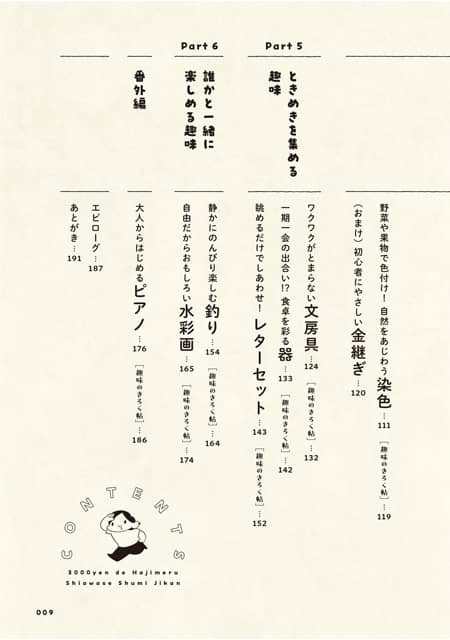 野菜や果物で色付け！ 自然をあじわう染色… 111 ［趣味のきろく帖］… 119
（おまけ）初心者にやさしい金継ぎ… 120
Part 5
ときめきを集める
趣味
ワクワクがとまらない文房具… 124 ［趣味のきろく帖］… 132
一期一会の出合い!? 食卓を彩る器… 133 ［趣味のきろく帖］… 142
眺めるだけでしあわせ！ レターセット… 143 ［趣味のきろく帖］… 152
Part 6
誰かと一緒に
楽しめる趣味
静かにのんびり楽しむ釣り… 154 ［趣味のきろく帖］… 164
自由だからおもしろい水彩画… 165 ［趣味のきろく帖］… 174
番外編
大人からはじめるピアノ… 176 ［趣味のきろく帖］… 186
エピローグ… 187
あとがき… 191
CONTENTS
3000yen de Hajimeru
Shiawase Shumi Jikan
009